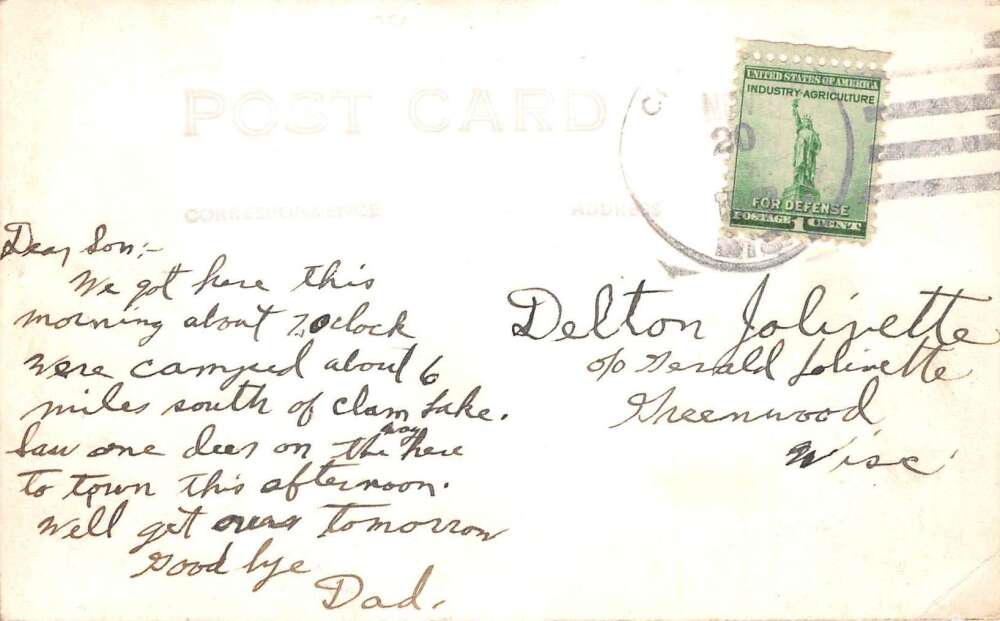 POST CARD
CORRESPONDENCE
ADDRESS
20
WIS
UNITED STATES OF AMERICA
INDUSTRY·AGRICULTURE
FOR DEFENSE
POSTAGE 1 CENT
Dear Son:-
We got here this
morning about 7 oclock
were camped about 6
miles south of Clam Lake.
Saw one deer on the way here
to town this afternoon.
Well get ours tomorrow
Good bye
Dad.
Delton Jolivette
c/o Gerald Jolivette
Greenwood
Wisc